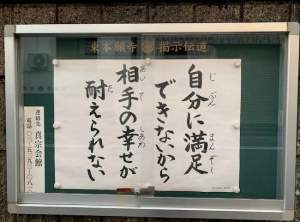 東本願寺 掲示伝道
自分に満足
できないから
相手の幸せが
耐えられない
じぶん
まんぞく
あいて
しあわ
た
連絡先
真宗会館